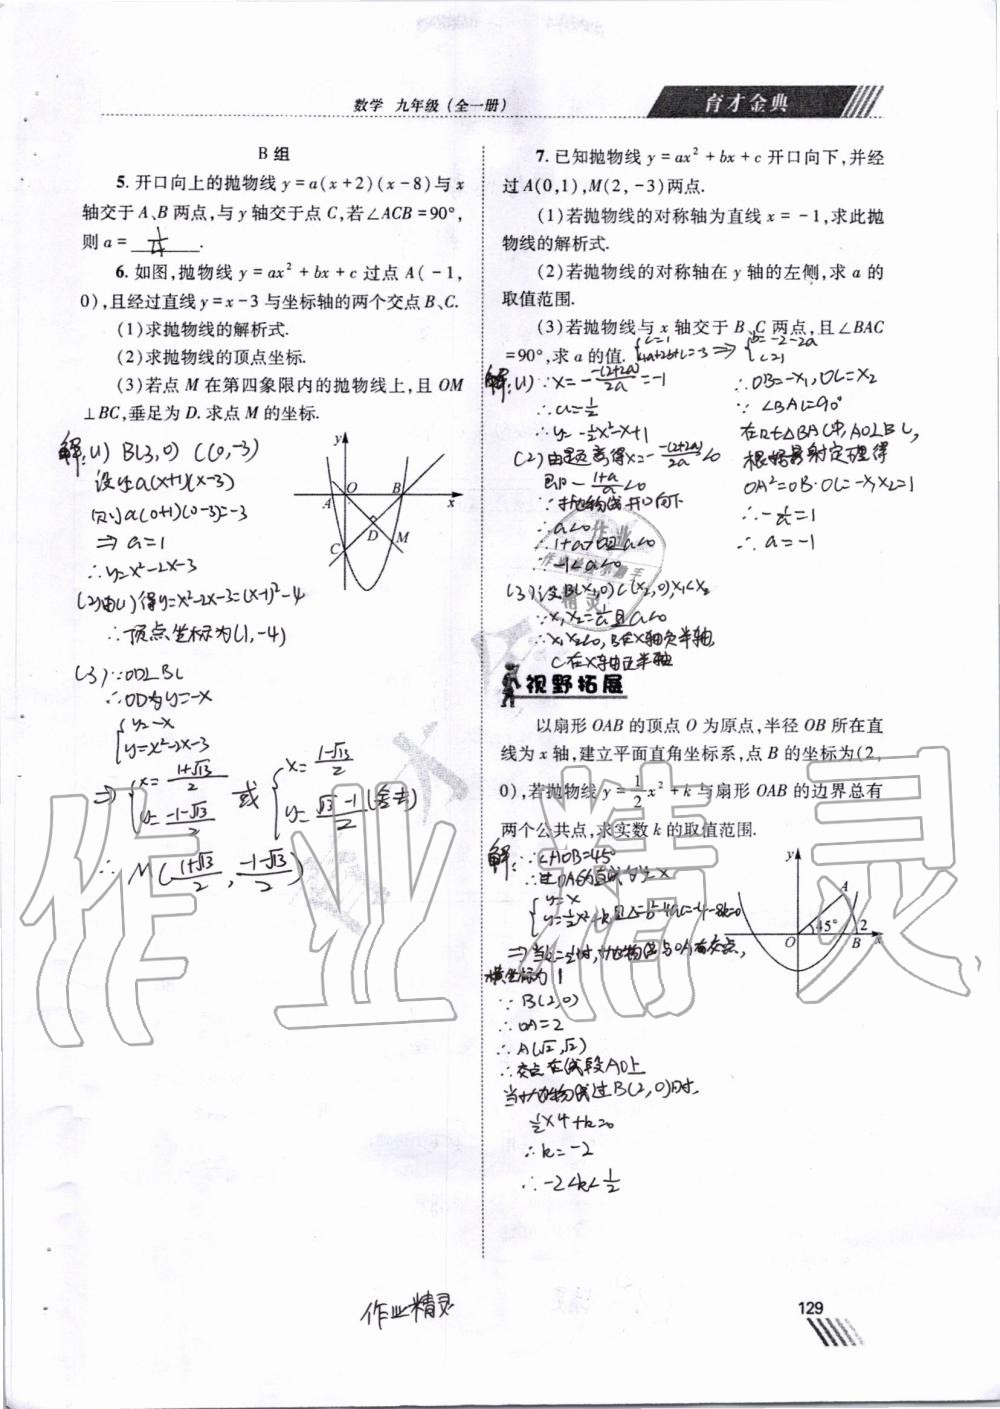 数学 九年级(全一册)
育才金典
B组
5.开口向上的抛物线 y=a(x+2)(x-8)与x
轴交于A、B两点,与y轴交于点C,若∠ACB=90°,
则a= 1/4 .
6.如图,抛物线 y=ax²+bx+c 过点 A(-1,
0),且经过直线y=x-3与坐标轴的两个交点B、C.
(1)求抛物线的解析式.
(2)求抛物线的顶点坐标.
(3)若点M在第四象限内的抛物线上,且OM
⊥BC,垂足为D.求点M的坐标.
解:(1) B(3,0) C(0,-3)
设y=a(x+1)(x-3)
则a(0+1)(0-3)=-3
⇒ a=1
∴y=x²-2x-3
(2)由(1)得y=x²-2x-3=(x-1)²-4
∴顶点坐标为(1,-4)
(3)∵OD⊥BC
∴OD为y=-x
{y=-x
y=x²-2x-3
⇒ {x=(1+√13)/2 y=(-1-√13)/2 或 {x=(1-√13)/2 y=(√13-1)/2 (舍去)
∴ M((1+√13)/2, (-1-√13)/2)
y
A O B x
C D M
7.已知抛物线 y=ax²+bx+c 开口向下,并经
过A(0,1),M(2,-3)两点.
(1)若抛物线的对称轴为直线x=-1,求此抛
物线的解析式.
(2)若抛物线的对称轴在y轴的左侧,求a的
取值范围.
(3)若抛物线与x轴交于B、C两点,且∠BAC
=90°,求a的值. {c=1 4a+2b+c=-3 ⇒ {b=-2-2a c=1
解:(1) ∵x=-(-(2+2a))/2a=-1
∴a=-1/2
∴y=-1/2x²-x+1
(2)由题意得x=-(-(2+2a))/2a<0
即-(1+a)/a<0
∵抛物线开口向下
∴a<0
∴1+a>0且a<0
∴-1<a<0
(3)设B(x₁,0)C(x₂,0),x₁<x₂
∵x₁x₂=1/a且a<0
∴x₁x₂<0,B在x轴负半轴
C在x轴正半轴
∴OB=-x₁,OC=x₂
∵∠BAC=90°
在Rt△BAC中,AO⊥BC,
根据射影定理得
OA²=OB·OC=-x₁x₂=1
∴-1/a=1
∴a=-1
视野拓展
以扇形OAB的顶点O为原点,半径OB所在直
线为x轴,建立平面直角坐标系,点B的坐标为(2,
0),若抛物线y=1/2x²+k与扇形OAB的边界总有
两个公共点,求实数k的取值范围.
解:∵∠AOB=45°
∴过OA的直线为y=x
{y=x
⇒当k=1/2时,抛物线与OA有交点,
横坐标为1
∵ B(2,0)
∴OA=2
∴A(√2,√2)
∴交点在线段AO上
当抛物线过B(2,0)时,
1/2×4+k=0
∴k=-2
∴-2<k<1/2
y
A
O 45° B 2 x
作业精灵
作业精灵
129